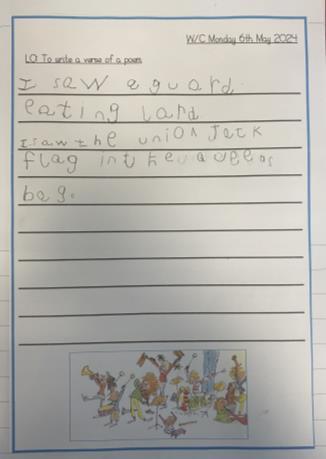 W/C Monday 6th May 2024
LO: To write a verse of a poem
I saw a guard.
eating lard
I saw the union Jack
flag in the queens
bag.